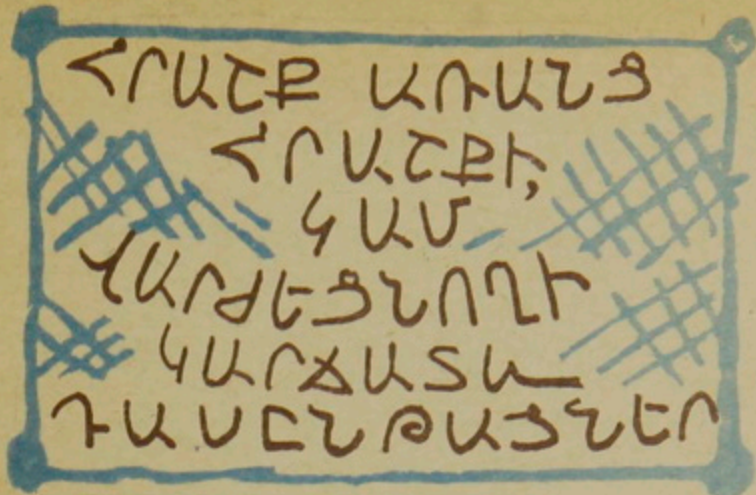 ՀՐԱՇՔ ԱՌԱՆՑ
ՀՐԱՇՔԻ,
ԿԱՄ
ՎԱՐԺԵՑՆՈՂԻ
ԿԱՐՃԱՏԵՎ
ԴԱՍԸՆԹԱՑՆԵՐ